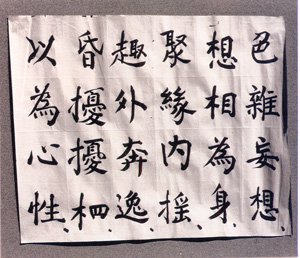 色雜妄想、
想相為身、
聚緣内摇、
趣外奔逸、
昏擾擾相
以為心性、